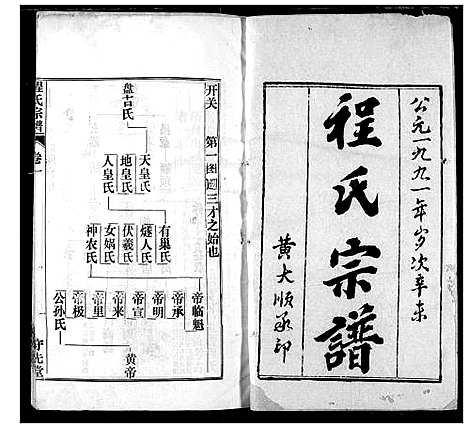 公元一九九一年岁次辛未
程氏宗譜
黄大顺承印
开关 第一图 三才之始也
盘古氏
天皇氏
地皇氏
人皇氏
有巢氏
燧人氏
伏羲氏
女娲氏
神农氏
帝临魁
帝承
帝明
帝宣
帝来
帝里
帝极
公孙氏
黄帝
程氏宗譜
卷一
一
守先堂